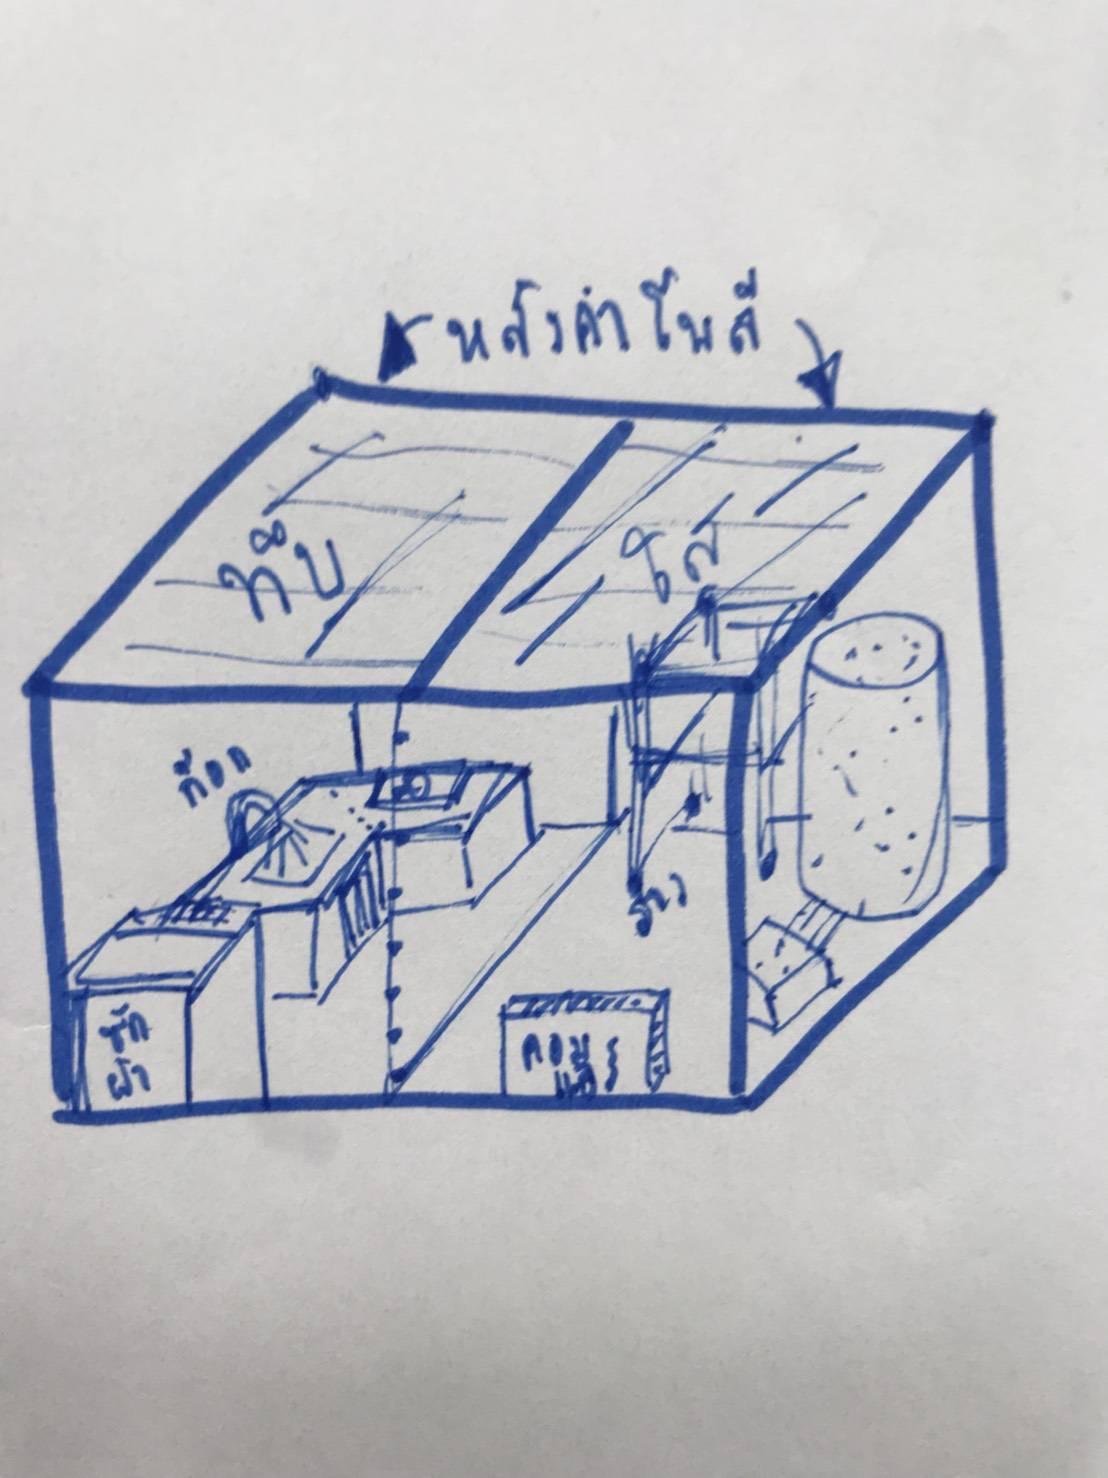 หลังคาโพลี
ทึบ
ใส
ก๊อก
ราว
ซัก
ผ้า
คอม
แอร์